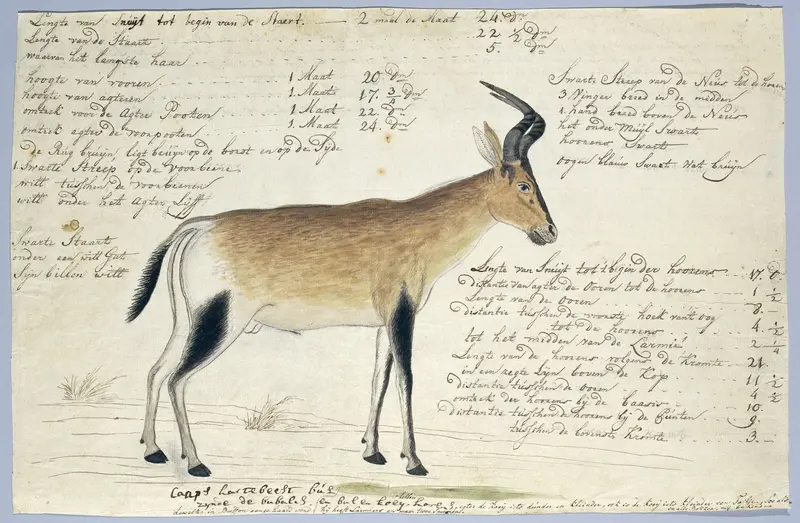 Lengte van Snuijt tot begin van de Staert. 2 maal de Maat 24. Dm
Lengte van de Staart 22 1/2 Dm
waarvan het langste haar 5. Dm
hoogte van vooren 1 Maat 20 Dm
hoogte van agteren 1 Maat 17. 3/4 Dm
omtrek voor de Agter Pooten 1 Maat 22. Dm
omtrek agter de voorpooten 1 Maat 24. Dm
de Rug bruijn, ligt bruijn op de borst en op de Sijde
1. Swarte Streep op de Voorbeene
witt tusschen de voorbeenen
witt onder het Agter Lijff
Swarte Staart
onder een witt Gat
Sijn billen witt
Swarte Streep van de Neus tot de hooren
3. Vinger breed in de midden
1. hand breed boven de Neus
het onder Muijl Swart
hoorens Swart
oogen blauw Swart Nat bruijn
Lengte van Snuijt tot 't begin der hoorens 17. D.
distantie van agter de Ooren tot de hoorens 1 1/2
Lengte van de Ooren 8.
distantie tusschen de voorste hoek van 't oog
tot de hoorens 4. 1/2
tot het midden van de Larmié 2 1/4
Lengte van de hoorens volgens de Kromte 21.
in een regte Lijn boven de Kop 11 1/2
distantie tusschen de ooren 4 1/2
omtrek der hoorens bij de baasis 10.
distantie tusschen de hoorens bij de Punten 9.
tusschen de bovenste Kromte 3.
Caaps hartebeest bul
zijnde de bubalis. en bul en koey hoorens